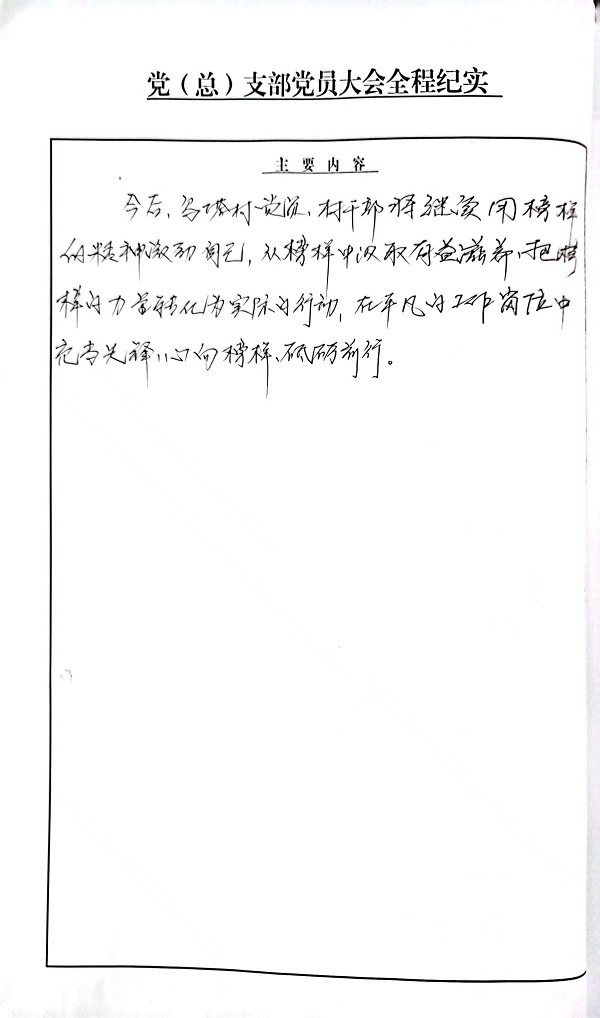 党（总）支部党员大会全程纪实
主要内容
今后，乌塔村党员、村干部将继续用榜样
的精神激励自己，从榜样中汲取有益滋养、把榜
样的力量转化为实际的行动，在平凡的工作岗位中
充当先锋，心向榜样、砥砺前行。